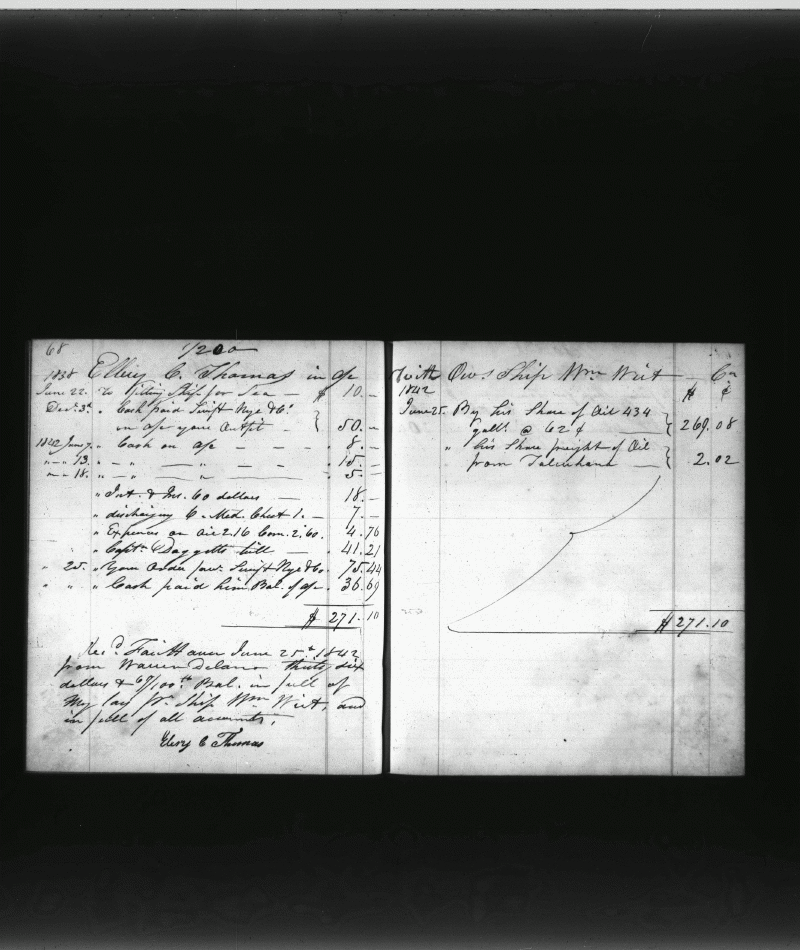 68
1/200
1838 Ellery C. Thomas in a/c
June 22. To fitting Ship for Sea — $ 10. –
Dec. 3d. " Cash paid Swift Nye & Co.
in a/c your Outfit – 50. –
1842 June 7. " Cash on a/c – – – 8. –
" – " 13. " – " — " – . 15. –
" – " 18. " – " — " – . 5. –
" Int. & Ins. 60 dollars — 18. –
" discharging & Med. Chest 1. – 7. –
" Expences on Oil 2.16 Com. 2.60. 4.76
" Capt. Daggetts bill — . 41.21
" 25. " Your Order fav. Swift Nye & Co. 75.44
" " " Cash paid him Bal. of a/c – 36.69
$ 271.10
Rec'd. Fairhaven June 25th 1842
from Warren Delano thirty six
dollars & 69/100ths Bal. in full of
My lay pr. Ship Wm Wirt, and
in full of all accounts,
Elery C Thomas
With Ows. Ship Wm Wirt Cr
1842 $ ¢
June 25. By his Share of Oil 434
galls. @ 62 ¢ — 269.08
" his Share freight of Oil
from Talcuhana — 2.02
$ 271.10